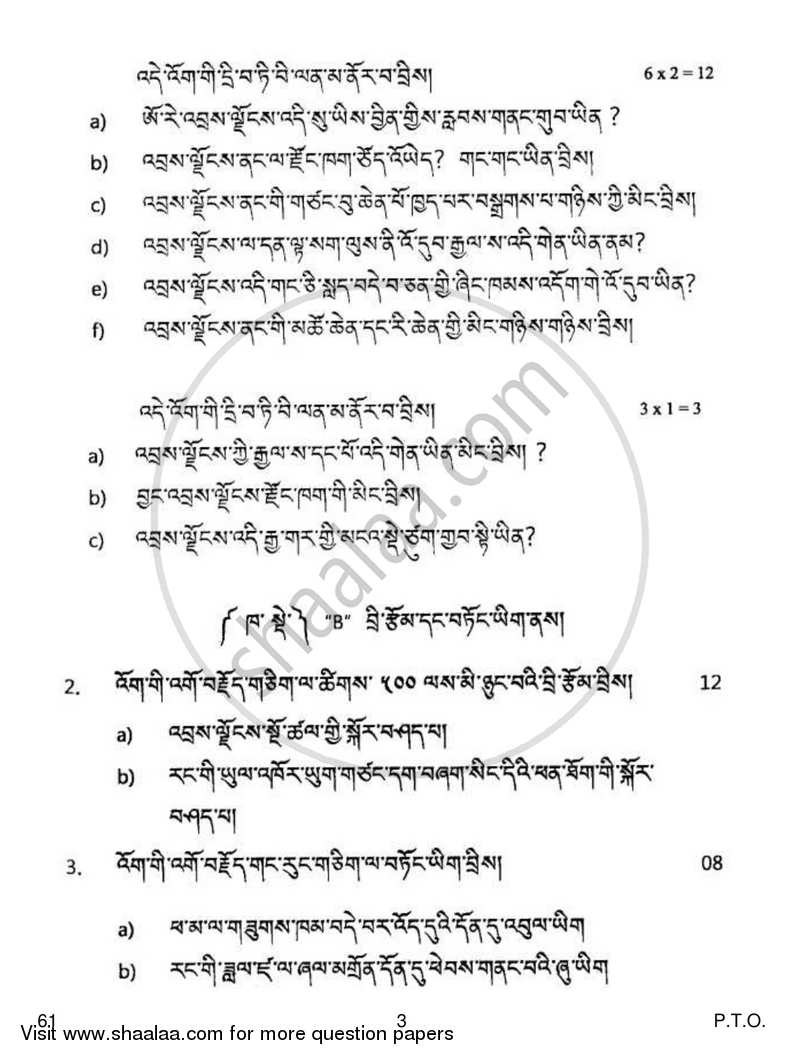 འདེ་འོག་གི་དྲི་བ་ཏི་པི་ལན་མ་ནོར་བ་བྲིས། 6 x 2 = 12
a) ཨོ་རེ་འབྲས་ལྗོངས་འདི་སུ་ཡིས་བྱིན་གྱིས་རླབས་གནང་གུབ་ཡིན ?
b) འབྲས་ལྗོངས་ནང་ལ་རྫོང་ཁག་ཙོད་འོཡེད? གང་གང་ཡིན་བྲིས།
c) འབྲས་ལྗོངས་ནང་གི་གཙང་བུ་ཆེན་པོ་ཁྱད་པར་བསྒྲགས་པ་གཉིས་ཀྱི་མིང་བྲིས།
d) འབྲས་ལྗོངས་ལ་དན་ལྟ་སག་ལུས་ནི་འོ་དུབ་རྒྱལ་ས་འདི་གེན་ཡིན་ནམ?
e) འབྲས་ལྗོངས་འདི་གང་ཅི་སླད་བདེ་བ་ཅན་གྱི་ཞིང་ཁམས་འདོག་གེ་འོ་དུབ་ཡིན?
f) འབྲས་ལྗོངས་ནང་གི་མཚོ་ཆེན་དང་རི་ཆེན་གྱི་མིང་གཉིས་གཉིས་བྲིས།
འདེ་འོག་གི་དྲི་བ་ཏི་པི་ལན་མ་ནོར་བ་བྲིས། 3 x 1 = 3
a) འབྲས་ལྗོངས་ཀྱི་རྒྱལ་ས་དང་པོ་འདི་གེན་ཡིན་མིང་བྲིས། ?
b) བྱང་འབྲས་ལྗོངས་རྫོང་ཁག་གི་མིང་བྲིས།
c) འབྲས་ལྗོངས་འདི་རྒྱ་གར་གྱི་མངའ་སྡེ་ཙུག་གྱབ་སྟི་ཡིན?
༼ ཁ་ སྡེ་༽ "B" བྲི་རྩོམ་དང་བཏོང་ཡིག་ནས།
2. འོག་གི་འགོ་བརྗོད་གཅིག་ལ་ཚིགས་ ༥༠༠ ལས་མི་ཉུང་བའི་བྲི་རྩོམ་བྲིས། 12
a) འབྲས་ལྗོངས་སྔོ་ཚལ་གྱི་སྐོར་བཤད་པ།
b) རང་གི་ཡུལ་འཁོར་ཡུག་གཙང་དག་བཞག་སིང་དེའི་ཕན་ཐོག་གི་སྐོར་
བཤད་པ།
3. འོག་གི་འགོ་བརྗོད་གང་རུང་གཅིག་ལ་བཏོང་ཡིག་བྲིས། 08
a) ཕ་མ་ལ་གཟུགས་ཁམ་བདེ་བར་འོད་དུའི་དོན་དུ་འབུལ་ཡིག
b) རང་གི་ཟླལ་ཛ་ལ་ཞལ་མགྲོན་དོན་དུ་ཕེབས་གནང་བའི་ཞུ་ཡིག
61 3 P.T.O.
Visit www.shaalaa.com for more question papers
shaalaa.com